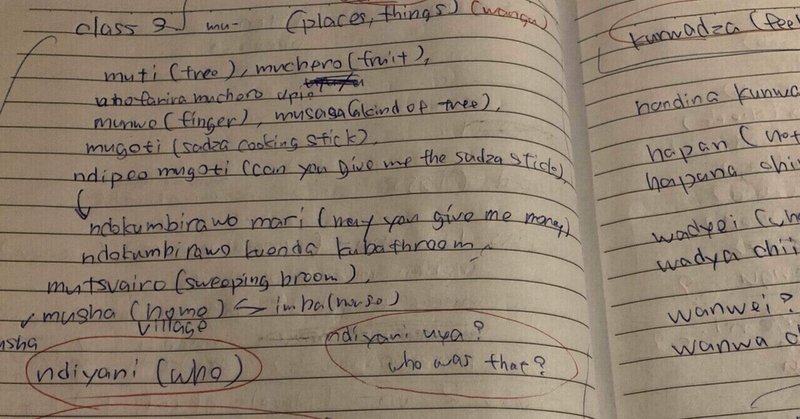 class 3 mu- (places, things) (wangu)
muti (tree), muchero (fruit),
unofarira muchero upi
munwo (finger), musasa (a kind of tree),
mugoti (sadza cooking stick)
ndipeo mugoti (can you give me the sadza stick)
ndokumbirawo mari (may you give me money)
ndokumbirawo kuenda kubathroom
mutsvairo (sweeping broom),
musha (home) imba (house)
village
usha
ndiyani (who)
ndiyani uya?
who was that?
kurwadza (feel
handina kunwa
hapan (not
hapana chi
wadyei (wh
wadya chii
wanwei?
wanwa c